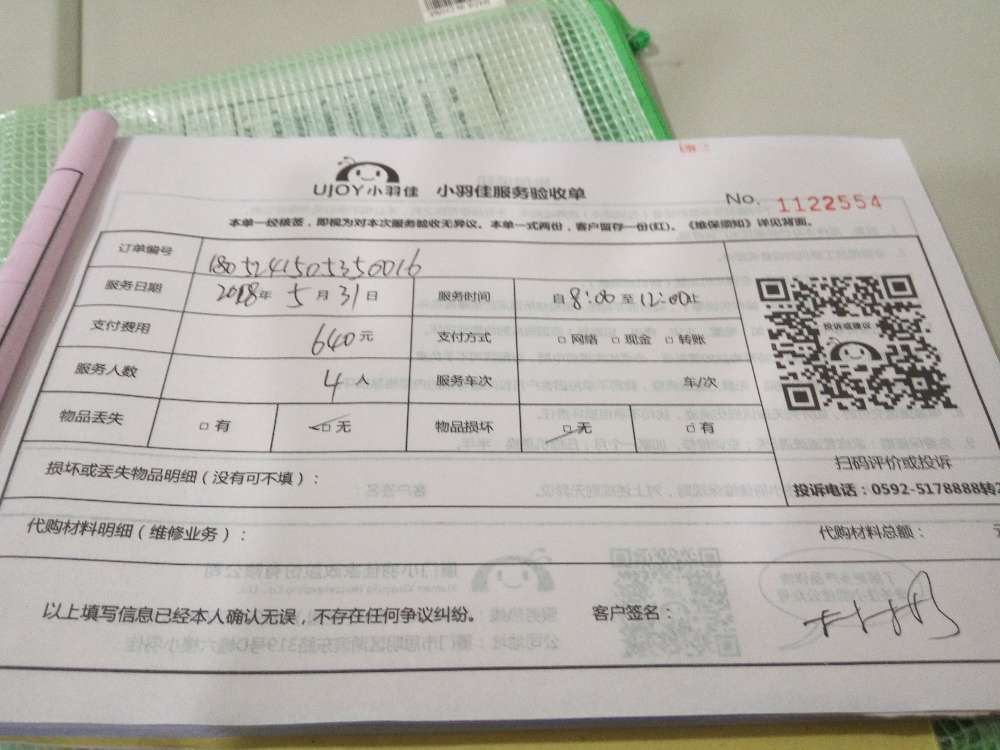 UJOY小羽佳 小羽佳服务验收单
No. 1122554
本单一经核签，即视为对本次服务验收无异议。本单一式两份，客户留存一份(红)。《维保须知》详见背面。
订单编号 180524150535001​6
服务日期 2018年 5月31日 服务时间 自8:00至12:00止
支付费用 640元 支付方式 □网络 □现金 □转账
服务人数 4人 服务车次 车/次
物品丢失 □有 □无 物品损坏 □无 □有
投诉或建议
扫码评价或投诉
投诉电话：0592-5178888转
损坏或丢失物品明细（没有可不填）：
代购材料明细（维修业务）： 代购材料总额：
以上填写信息已经本人确认无误，不存在任何争议纠纷。 客户签名：